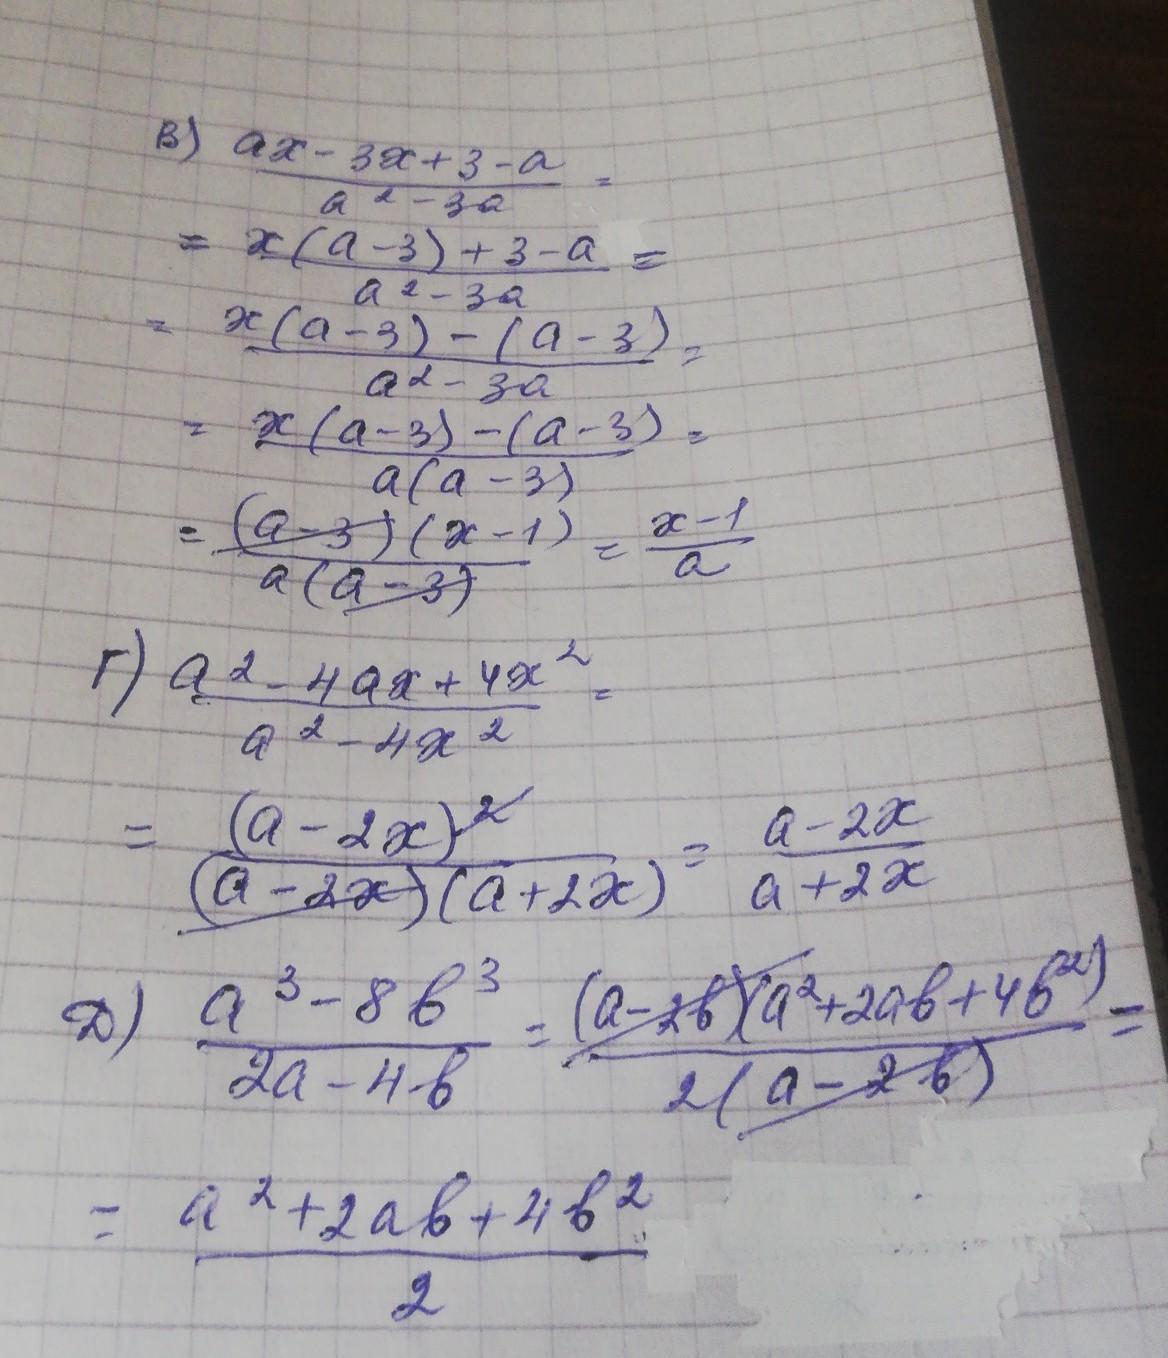 в) (ax - 3x + 3 - a)/(a² - 3a) =
= (x(a - 3) + 3 - a)/(a² - 3a) =
= (x(a - 3) - (a - 3))/(a² - 3a) =
= (x(a - 3) - (a - 3))/(a(a - 3)) =
= ((a - 3)(x - 1))/(a(a - 3)) = (x - 1)/a
г) (a² - 4ax + 4x²)/(a² - 4x²) =
= (a - 2x)²/((a - 2x)(a + 2x)) = (a - 2x)/(a + 2x)
Д) (a³ - 8b³)/(2a - 4b) = ((a - 2b)(a² + 2ab + 4b²))/(2(a - 2b)) =
= (a² + 2ab + 4b²)/2